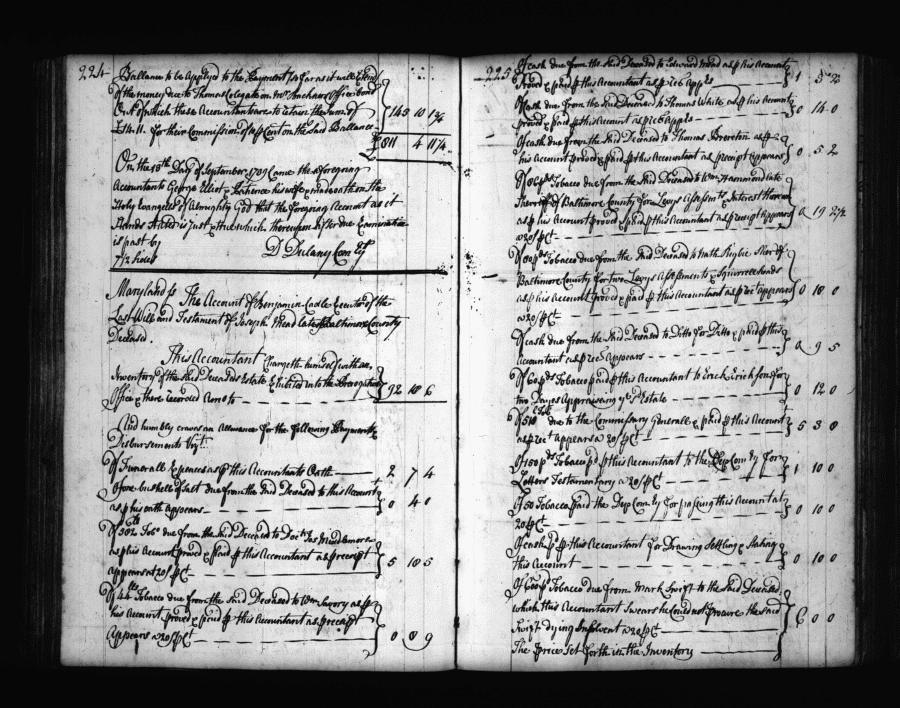 224
Ballance to be Applyed to the Payment so far as it will Extend
of the money due to Thomas Colegate on
Out of which these Accountants are to retain the Sum of
£14.11. for their Commission of 10 p Cent on the Said Ballance
143 10 1¾
£811 4 11¼
On the 18th Day of September 1709 Came the aforegoing
Accountants George Elliot & Patience his wife & made oath on the
Holy Evangells of Almighty God that the foregoing Account as it
Stands Stated is just & true which thereupon after due Examination
is past by
D Dulany Com Gll
7½ Sides
Maryland ss The Account of Benjamin Cadle Executor of the
Last Will and Testament of Joseph Mead late of Baltimore County
Deceased.
This Accountant Chargeth himself with an
Inventory of the Said Deceaseds Estate Exhibited into the Prerogative
Office & there recorded Amo to
92 18 6
And humbly craves an Allowance for the following Payments &
Disbursements Vizt.
Of Funerall Expences as p this Accountants Oath 2 7 4
Of one bushell of Salt due from the Said Deceased to this Accountt
as p his oath Appears 0 4 0
Of 502 Tobo due from the Said Deceased to Doctr
as p his Account proved & paid p this Accountant as p receipt
appears at 20/ p Ct 5 10 5
Of 44 lbs Tobacco due from the Said Deceased to Wm Savory as p
his Account proved & paid p this Accountant as p receipt
Appears @ 20/ p Ct 0 8 9
225
Of Cash due from the Said Deceased to Edward Mead as p his Account
Proved & paid p this Accountant as p rec't App'rs 1 5 2
Of Cash due from the Said Deceased to Thomas White as p his Accountt
proved & paid p this Account as p rect Appears 0 14 0
Of Cash due from the Said Deceased to Thomas Brereton as p
his Account proved & paid p this Accountant as p receipt Appears 0 5 2
Tobacco due from the Said Deceased to Wm Hammond late
Sherriff of Baltimore County for Levys Assessmts & Interest thereon
as p his Account proved & paid p this Accountant as p receipt Appears
@ 20/ p Ct
Tobacco due from the Said Deceased to Nath Rigbie Sherr of
Baltimore County for two Levys Assessments & Squirrell heads
as p his Account proved & paid p this Accountant as p rect appears
@ 20/ p Ct 0 18 0
Of Cash due from the Said Deceased to Ditto for Ditto & paid p this
Accountant as p rect Appears 0 9 5
Of 60 pds Tobacco paid p this Accountant to Erick Erickson for
two Days Appraising ye Sd Estate 0 12 0
due to the Commissary Generall & paid p this Account
as p rect appears @ 20/ p Ct 5 3 0
Of 100 pds Tobacco pd p this Accountant to the Dep Com ry for
Letters Testamentary @ 20/ p Ct 1 0 0
Of 50 Tobacco paid the Dep Com ry for passing this Account at
20/ p Ct 0 10 0
Of Cash pd p this Accountant for Drawing Settling & Stating
this Account 0 10 0
Of 600 pds Tobacco due from Mark Swift to the Said Deceased
which this Accountant Swears he Could not procure the Said
Swift dying Insolvent @ 20/ p Ct
6 0 0
The Price Set forth in the Inventory